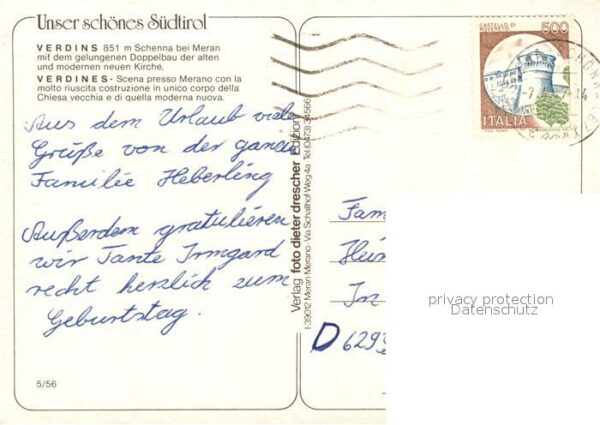 Unser schönes Südtirol
VERDINS 851 m Schenna bei Meran
mit dem gelungenen Doppelbau der alten
und modernen neuen Kirche.
VERDINES - Scena presso Merano con la
molto riuscita costruzione in unico corpo della
Chiesa vecchia e di quella moderna nuova.
Aus dem Urlaub viele
Grüße von der ganzen
Familie Heberling
Außerdem gratulieren
wir Tante Irmgard
recht herzlich zum
Geburtstag.
5/56
Verlag foto dieter drescher Edition
I-39012 Meran Merano - Via Schallhof Weg 4a Tel. (0473) 34566
CASTELLO DI
ROVERETO
500
ITALIA
Fam
Hein
In
D 6293
privacy protection
Datenschutz